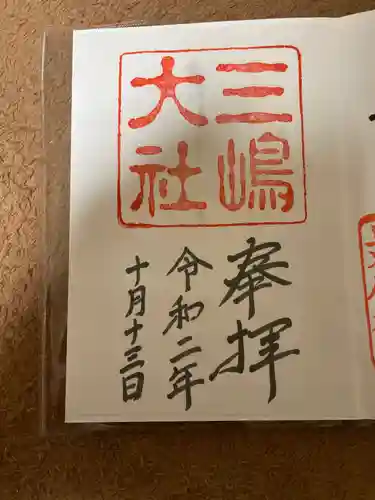 三嶋
大社
奉拝
令和二年
十月十三日